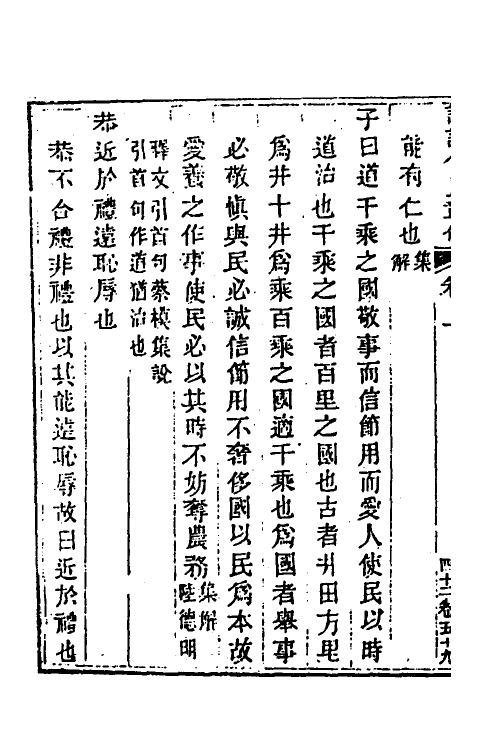 能有仁也集解
子曰道千乘之國敬事而信節用而愛人使民以時
道治也千乘之國者百里之國也古者井田方里
爲井十井爲乘百乘之國適千乘也爲國者舉事
必敬慎與民必誠信節用不奢侈國以民爲本故
愛養之作事使民必以其時不妨奪農務集解陸德明
釋文引首句蔡模集說
引首句作道猶治也
恭近於禮遠恥辱也
恭不合禮非禮也以其能遠恥辱故曰近於禮也